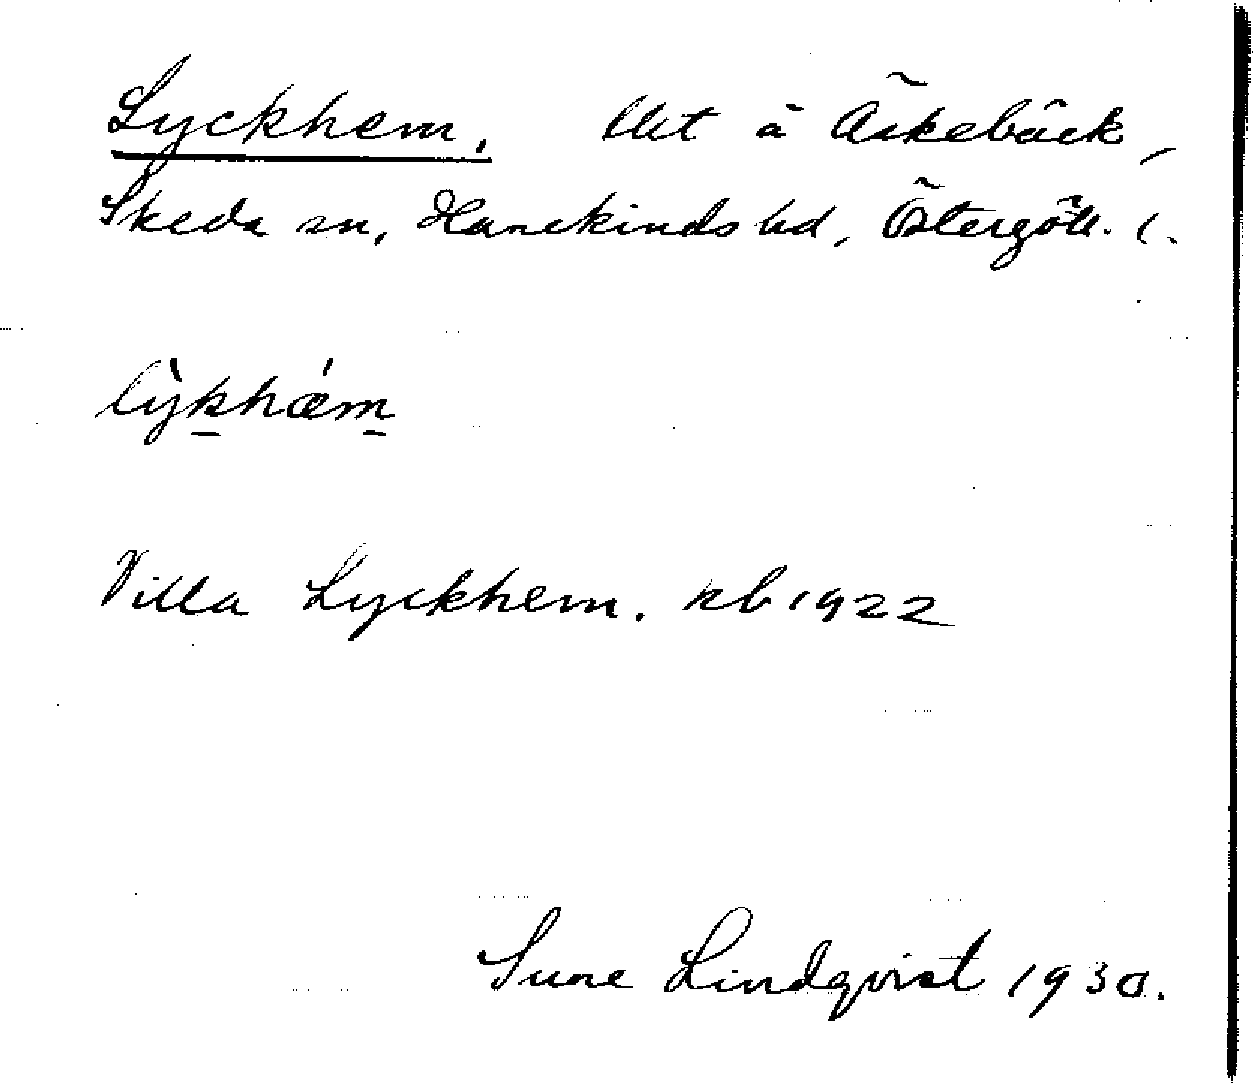 Lyckhem. lht å Äskebäck,
Skeda sn, Hanekinds hd, Östergötl. l.
lỳkhǽm
Villa Lyckhem. kb 1922
Sune Lindqvist 1930.